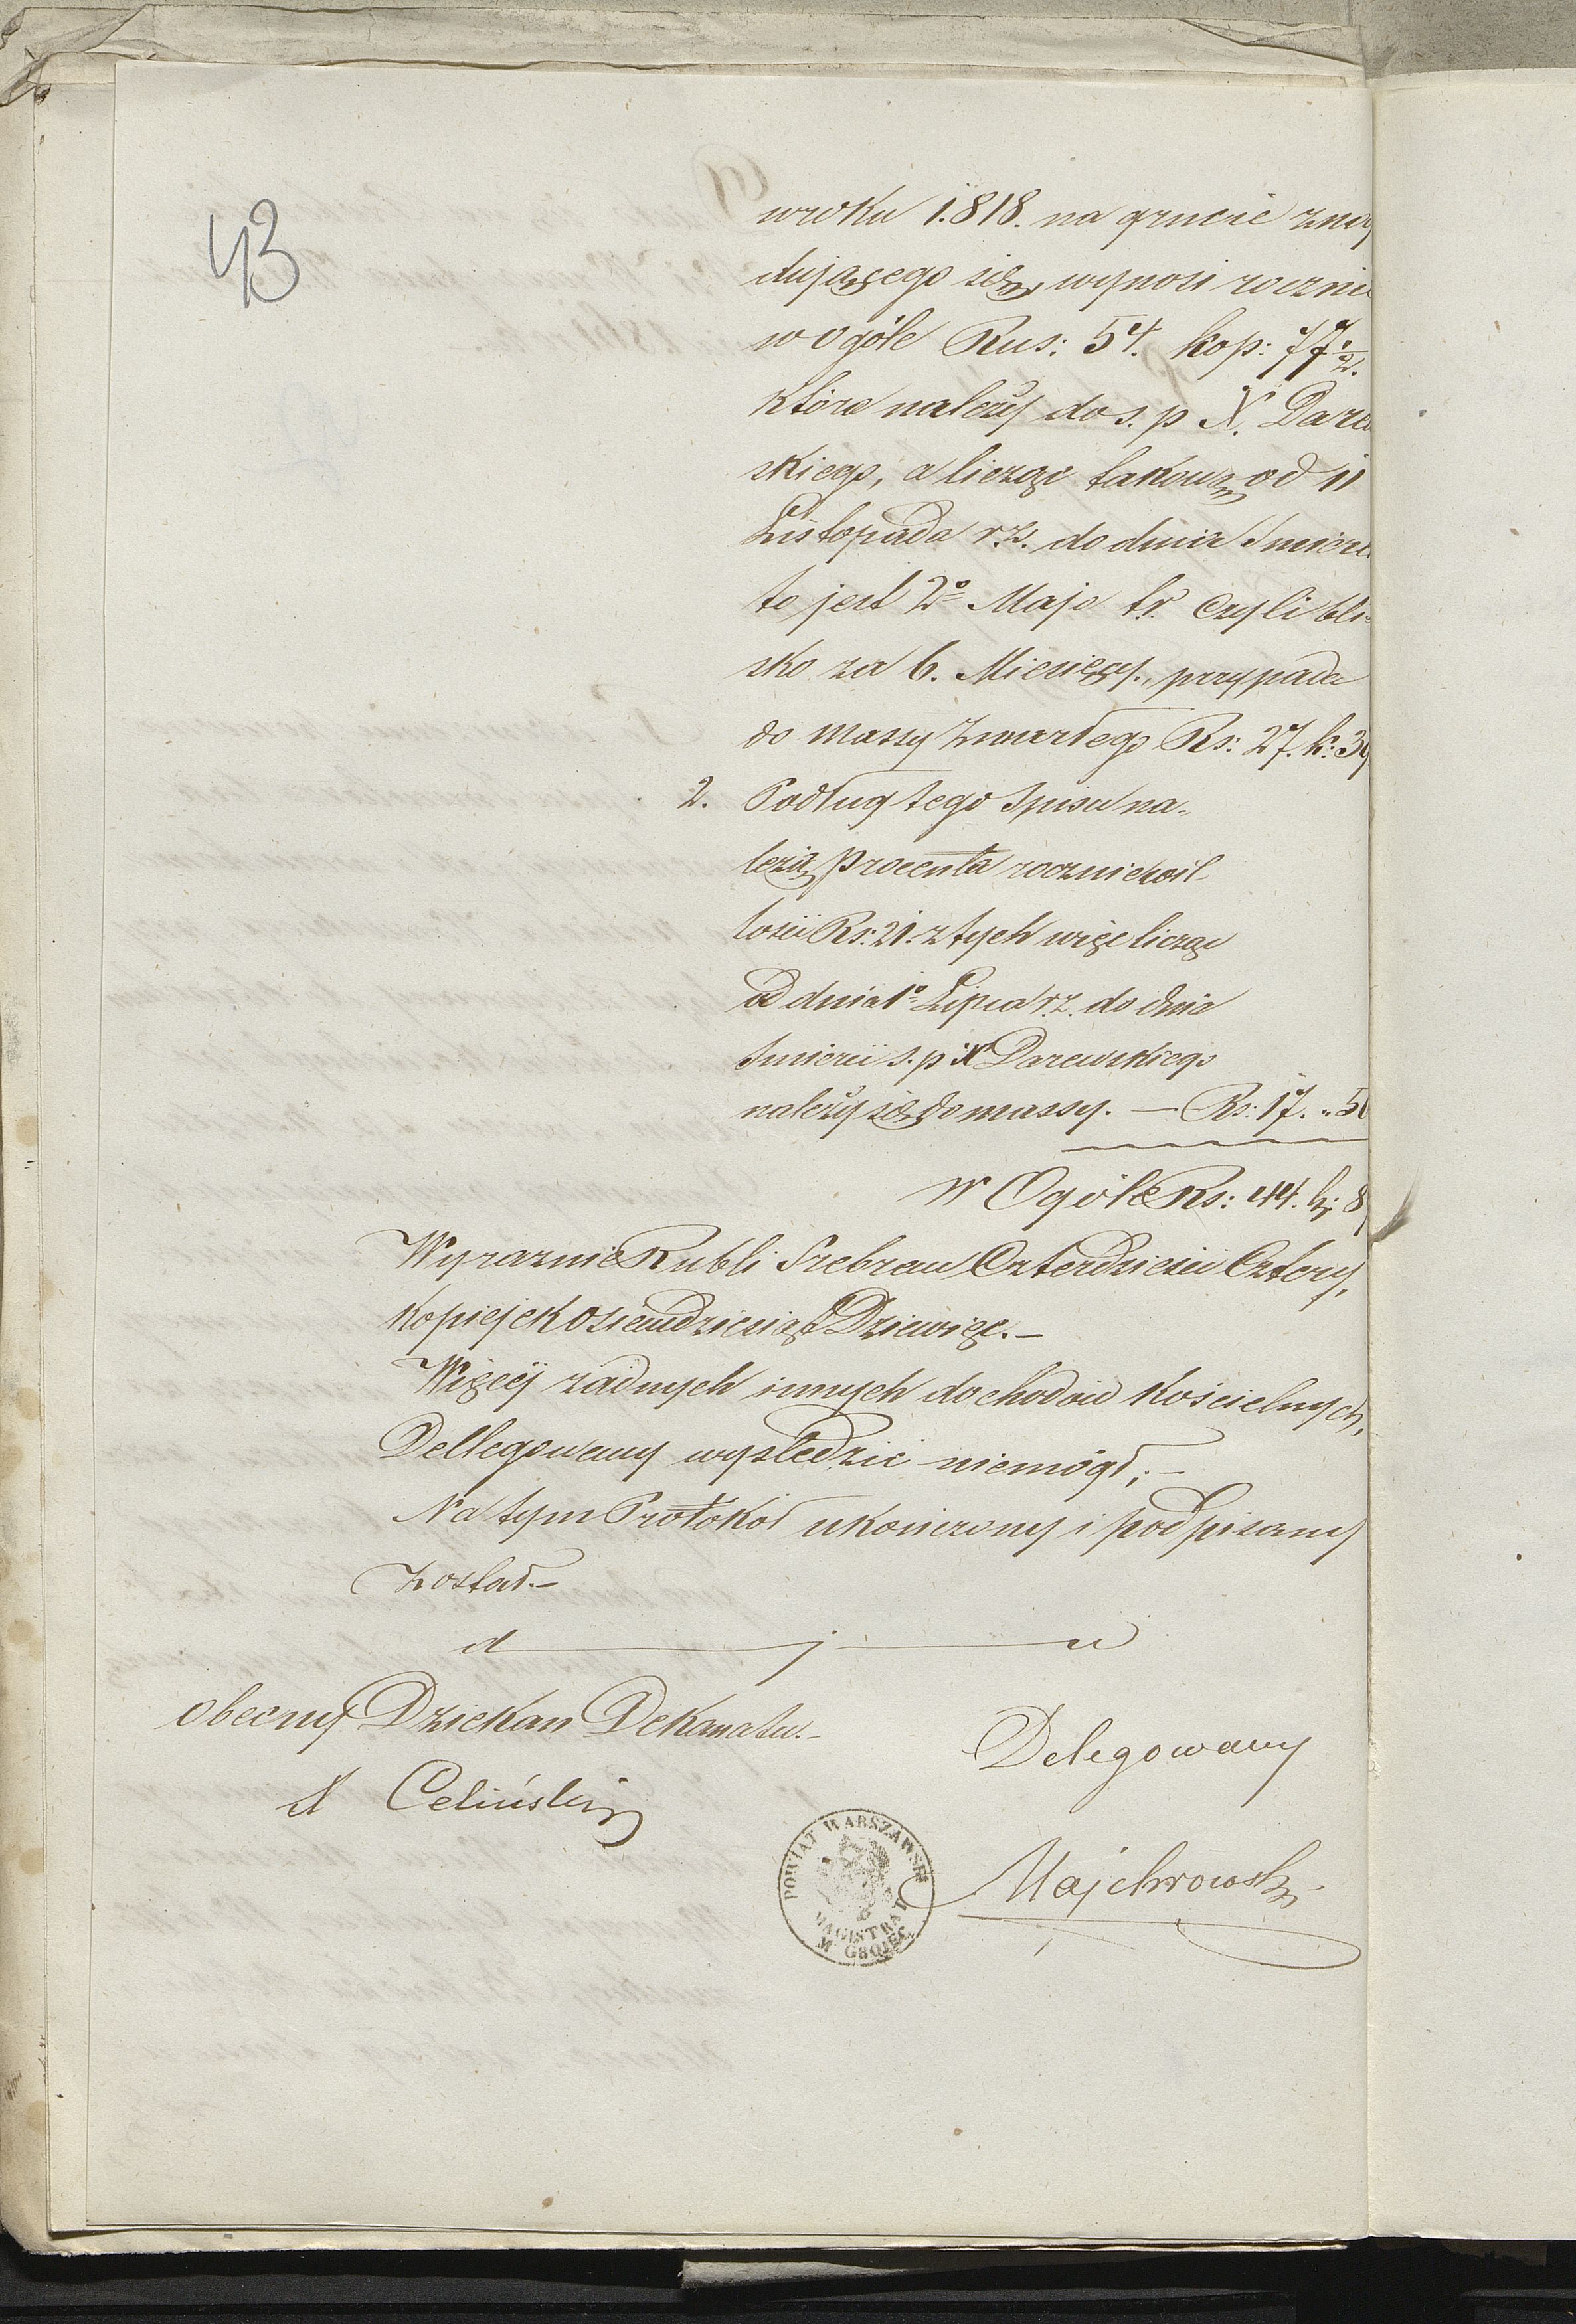 43
w roku 1.818. na gruncie znaj
dującego się, wynosi roczni
w ogóle Rus: 54. kop: 77 1/2.
które należy do s. p X. Darew
skiego, a licząc takową od 11
Listopada r.z. do dnia Smierc
to jest 2º Maja t.r. czyli bli=
sko za 6. Miesięcy., przypada
do massy Zmarłego Rs: 27. k: 39
2. Podług tego Spisu na-
leżą Procenta rocznie w il-
lości Rs: 21. z tych więc licząc
od dnia 1º Lipca r.z. do dnia
Smierci s. p X Darewskiego
należy się do massy. — Rs: 17. „ 50
W Ogóle Rs: 44. k: 8
Wyraznie Rubli Srebrem Czterdzieści Cztery,
Kopiejek osiemdziesiąt Dziewięć. —
Więcéj żadnych innych dochodów Kościelnych,
Dellegowany wysledzić niemógł; —
Na tym Protokół ukończony i podpisany
został. —
obecny Dziekan Dekanatu. —
Delegowany
X Celiński
Majchrowski
POWIAT WARSZAWSKI
MAGISTRAT
M. GROJEC